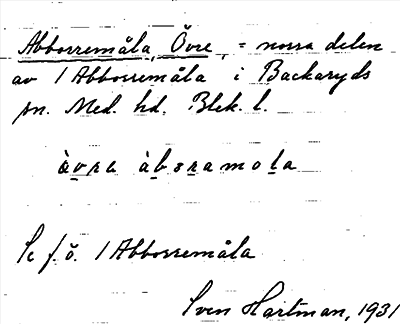 Abborremåla, Övre, = norra delen
av 1 Abborremåla i Backaryds
sn. Med. hd. Blek. l.
àvra àboramola
Se f. ö. 1 Abborremåla
Sven Hartman, 1931